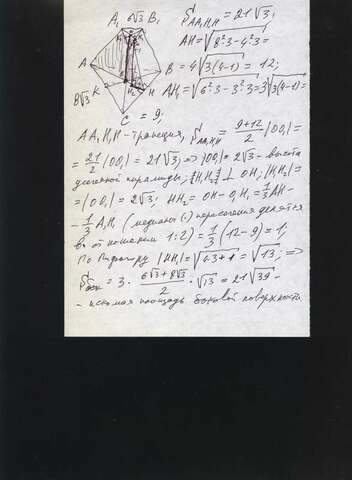 A₁ 6√3 B₁ S_{AA₁H₁H} = 21√3;
AH = √(8²·3 − 4²·3) =
A B = 4√(3(4−1)) = 12;
8√3 K H A₁H₁ = √(6²·3 − 3²·3) = 3√(3(4−1)) =
C = 9;
AA₁H₁H – трапеция, S_{AA₁H₁H} = (9+12)/2 |OO₁| =
= 21/2 |OO₁| = 21√3; ⇒ |OO₁| = 2√3 – высота
усеченной пирамиды; [H₁H₂] ⊥ OH; |H₁H₂| =
= |OO₁| = 2√3; HH₂ = OH − O₁H₁ = 1/3 AH −
− 1/3 A₁H₁ (медианы (·) пересечения делятся
в отношении 1:2) = 1/3 (12 − 9) = 1;
По Пифагору |HH₁| = √(4·3+1) = √13; ⇒
S_{бок} = 3 · (6√3 + 8√3)/2 · √13 = 21√39 –
– искомая площадь боковой поверхности